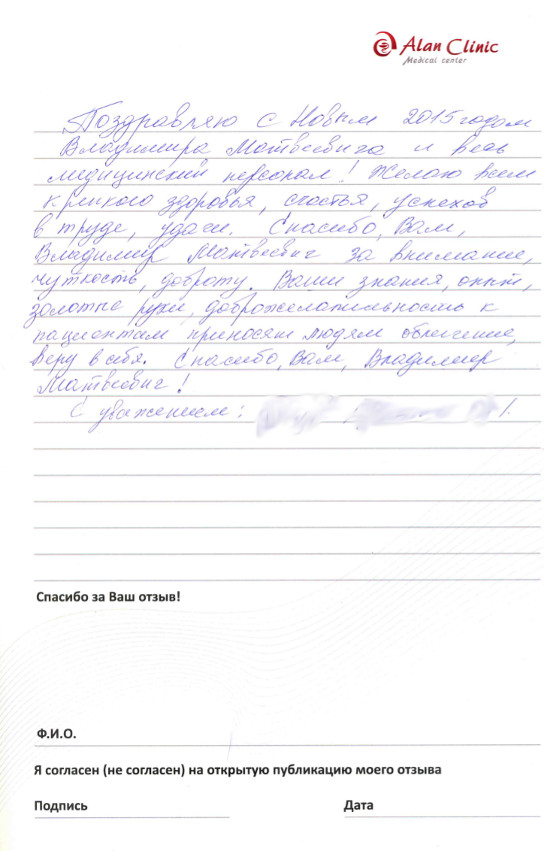 Alan Clinic
Medical center
Поздравляю с Новым 2015 годом
Владимира Матвеевича и весь
медицинский персонал! Желаю всем
крепкого здоровья, счастья, успехов
в труде, удачи. Спасибо, Вам,
Владимир Матвеевич за внимание,
чуткость, доброту. Ваши знания, опыт,
золотые руки, доброжелательность к
пациентам приносят людям облегчение,
веру в себя. Спасибо, Вам, Владимир
Матвеевич!
С уважением:
Спасибо за Ваш отзыв!
Ф.И.О.
Я согласен (не согласен) на открытую публикацию моего отзыва
Подпись Дата